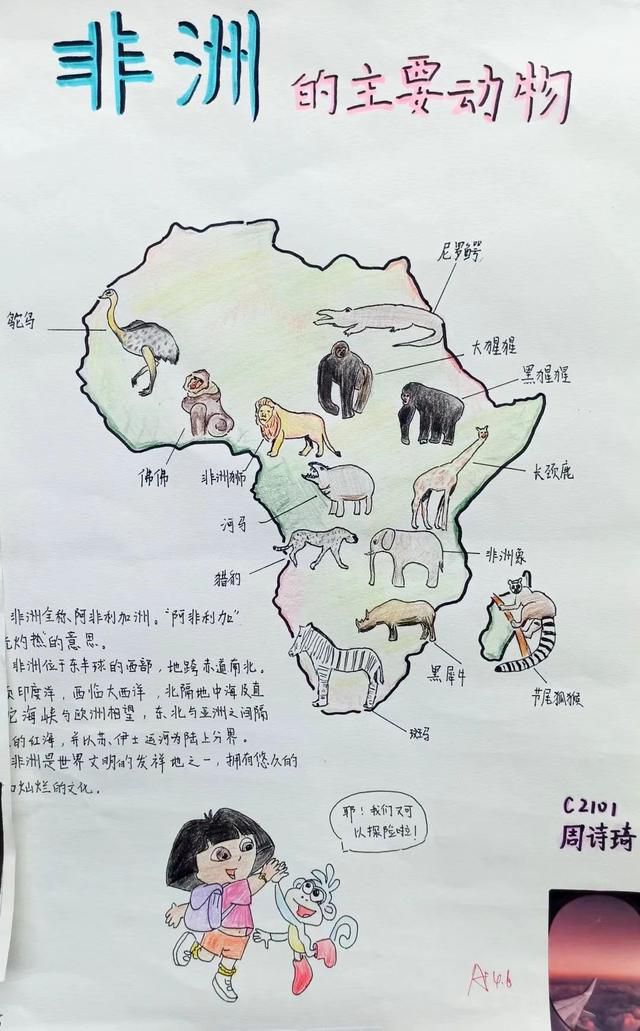 非洲
的主要动物
尼罗鳄
鸵鸟
大猩猩
黑猩猩
狒狒
非洲狮
长颈鹿
河马
非洲象
猎豹
黑犀牛
节尾狐猴
斑马
非洲全称阿非利加洲。“阿非利加”
灼热的意思。
非洲位于东半球的西部，地跨赤道南北。
印度洋，西临大西洋，北隔地中海及直
海峡与欧洲相望，东北与亚洲之间隔
的红海，并以苏伊士运河为陆上分界。
非洲是世界文明的发祥地之一，拥有悠久的
灿烂的文化。
耶！我们又可
以探险啦！
C2101
周诗琦
A+
4.6